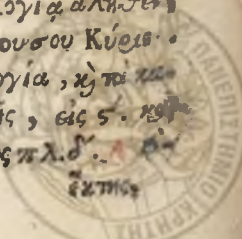 λογία ἀληθεῖ
ουσου Κύριε
ογία, κỳ τὰ
ς, εἰς ϛ΄.
ς πλ. δ΄.
ἕκτης
ΑΝΕΠΙΣΤΗΜΙΟ ΚΡΗΤΗΣ